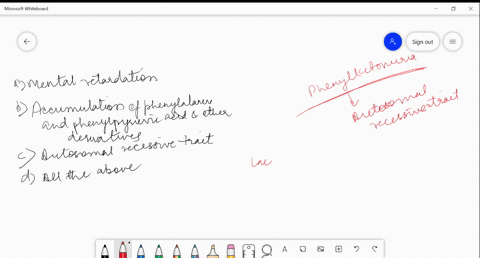 Microsoft Whiteboard
Sign out
a) Mental retardation
b) Accumulation of phenylalanine
and phenylpyruvic acid & other
derivatives
c) Autosomal recessive trait
d) All the above
Phenylketonuria
Autosomal
recessive trait
Lac